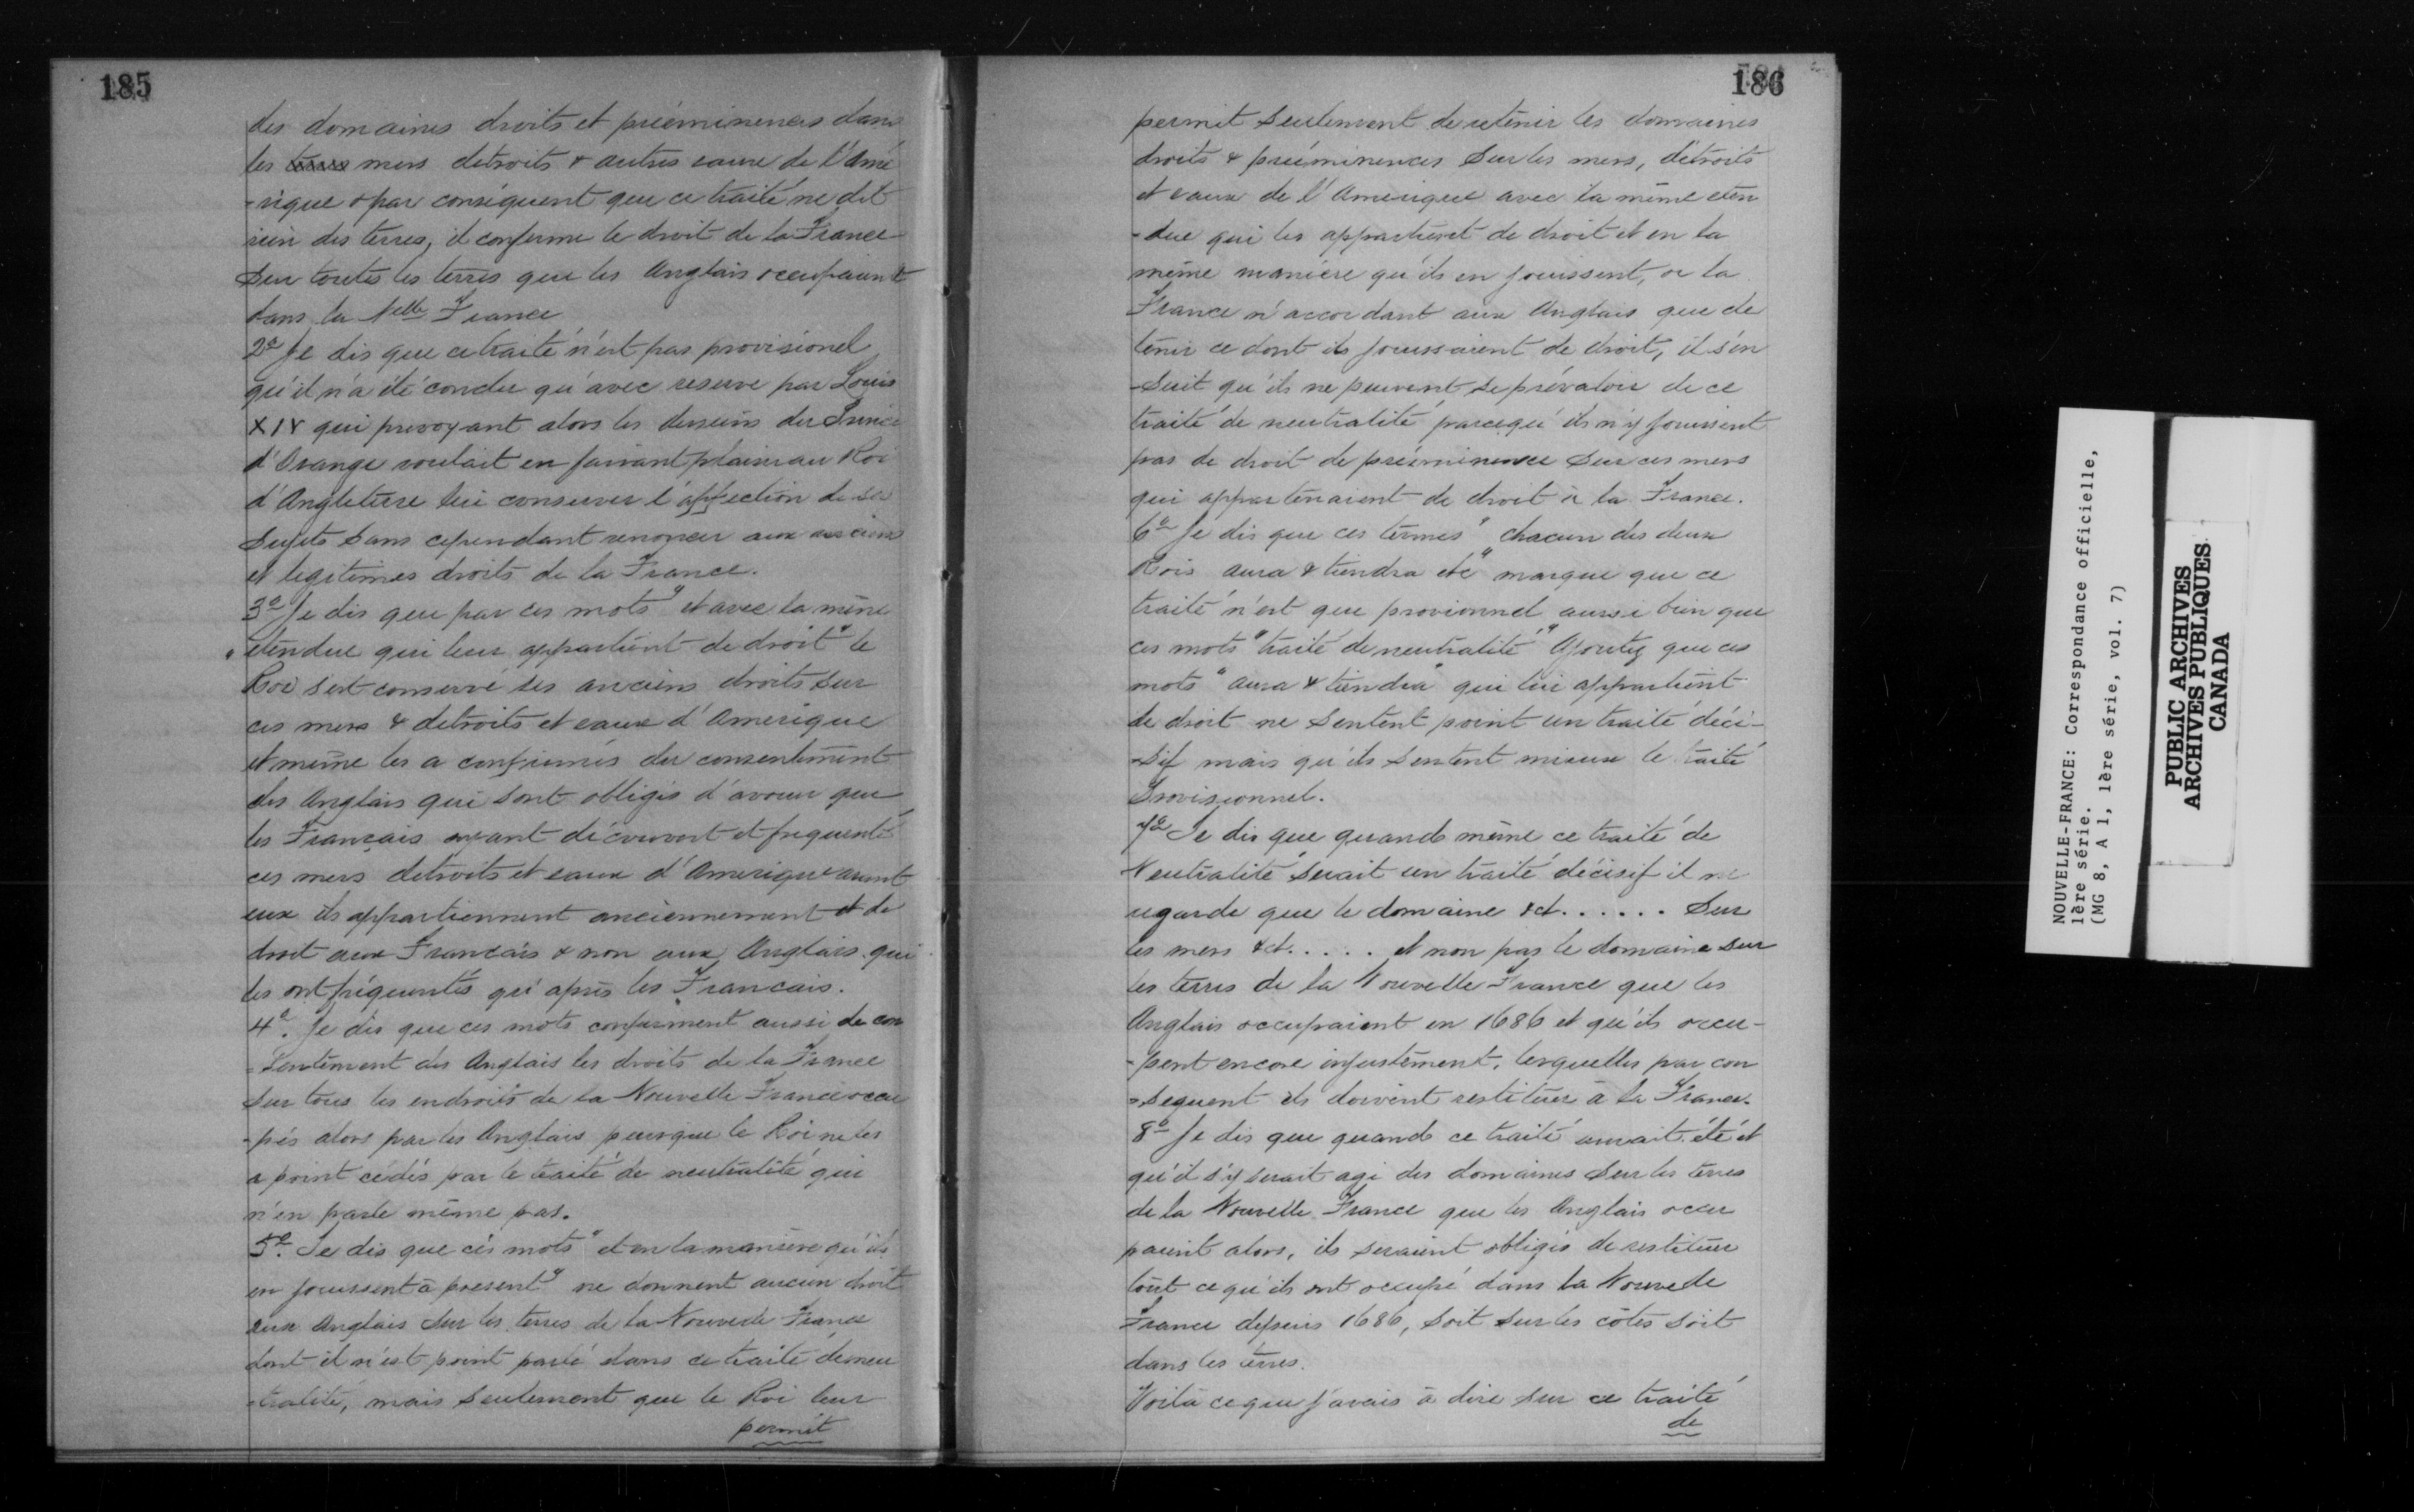 185
des domaines droits et prééminences dans
les mers detroits & autres eaux de l'Amé
-rique & par conséquent que ce traité ne dit
rien des terres, il confirme le droit de la France
sur toutes les terres que les Anglais occupaient
dans la Nelle France
2o Je dis que ce traité n'est pas provisionel
qu'il n'a été conclu qu'avec reserve par Louis
XIV qui prevoyant alors les desseins du Prince
d'Orange voulait en faisant plaisir au Roi
d'Angleterre lui conserver l'affection de ses
Sujets sans cependant renoncer aux anciens
et legitimes droits de la France.
3o Je dis que par ces mots "et avec la même
"étendue qui leur appartient de droit" le
Roi s'est conservé ses anciens droits sur
ces mers & detroits et eaux d'Amerique
et même les a confirmés du consentement
des Anglais qui sont obligés d'avouer que
les Français ayant découvert et frequenté
ces mers detroits et eaux d'Amerique avant
eux ils appartiennent anciennement et de
droit aux Francais & non aux Anglais qui
les ont fréquentés qu'après les Francais.
4o. Je dis que ces mots confirment aussi de con
=sentement des Anglais les droits de la France
sur tous les endroits de la Nouvelle France occu
-pés alors par les Anglais puisque le Roi ne les
a point cédés par le traité de neutralité qui
n'en parle même pas.
5o. Je dis que ces mots "et en la manière qu'ils
en jouissent à present" ne donnent aucun droit
aux Anglais sur les terres de la Nouvelle France
dont il n'est point parlé dans ce traité de neu
=tralité, mais seulement que le Roi leur
permit
186
permit seulement de retenir les domaines
droits & prééminences sur les mers, détroits
et eaux de l'Amerique avec la même eten
-due qui les appartient de droit et en la
même manière qu'ils en jouissent, or la
France n'accordant aux Anglais que de
tenir ce dont ils jouissaient de droit, il s'en
-suit qu'ils ne peuvent se prévaloir de ce
traité de neutralité parcequ'ils n'y jouissent
pas de droit de prééminence sur ces mers
qui appartenaient de droit à la France.
6o Je dis que ces termes "chacun des deux
Rois aura & tiendra etc" marque que ce
traité n'est que provionnel aussi bien que
ces mots "traité de neutralité" Ajoutez que ces
mots "aura & tiendra" qui lui appartient
de droit ne sentent point un traité déci-
-sif mais qu'ils sentent mieux le traité
Provisionnel.
7o Je dis que quand même ce traité de
Neutralité serait un traité décisif il ne
regarde que le domaine &ct...... sur
les mers &ct..... et non pas le domaine sur
les terres de la Nouvelle France que les
Anglais occupaient en 1686 et qu'ils occu-
-pent encore injustement, lesquelles par con
=sequent ils doivent restituer à la France.
8o Je dis que quand ce traité aurait été et
qu'il s'y serait agi des domaines sur les terres
de la Nouvelle France que les Anglais occu
paient alors, ils seraient obligés de restituer
tout ce qu'ils ont occupé dans la Nouvelle
France depuis 1686, soit sur les côtes soit
dans les terres.
Voilà ce que j'avais à dire sur ce traité
de
NOUVELLE-FRANCE: Correspondance officielle,
1ère série.
(MG 8, A 1, 1ère série, vol. 7)
PUBLIC ARCHIVES
ARCHIVES PUBLIQUES
CANADA